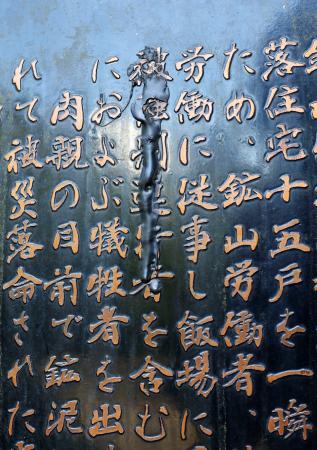 落住宅十五戸を一瞬
ため、鉱山労働者、
労働に従事し飯場に
被制連行者を含む
におよぶ犠牲者を出
肉親の目前で鉱泥
れて被災落命された